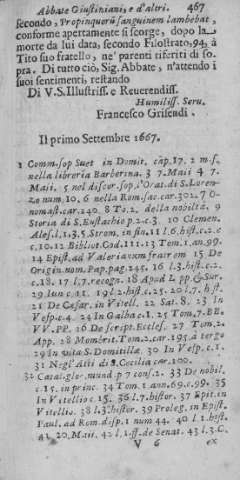 Abbate Giustiniani, e d'altri. 467
secondo, Propinquorũ sanguinem lambebat,
conforme apertamente si scorge, dopo la
morte da lui data, secondo Filostrato, 94, à
Tito suo fratello, ne' parenti riferiti di so-
pra. Di tutto ciò, Sig. Abbate, n'attendo i
suoi sentimenti, restando
Di V.S. Illustriss. e Reuerendiss.
Humiliss. Seru.
Francesco Grisendi.
Il primo Settembre 1667.
1 Comm. sop Suet in Domit. cap. 17. 2 m-s.
nella libreria Barberina. 3 7. Maii 4 7.
Maii. 5 nel discor. sop. l'Orat. di S. Loren-
zo num 10. 6 nella Rom. sac. car. 302. 7 O-
nomast. car. 240. 8 To. 2. della nobiltà. 9
Storia di S. Eustachio p. 2. c. 3. 10 Clemen.
Ales. l. 1. 3. 5. Strom. in fin. 11 l. 6. hist. c. 2. e
c. 10. 12 Bibliot. Cod. 111. 13 Tom. 1. an. 99.
14 Epist. ad Valerium fratrem 15 De
Origin. nom. Pap. pag. 245. 16 l. 3. hist. c. 2.
c. 18. 17 l. 7. recogn. 18 Apud
29 Iun c. 11. 19 l. 2. hist. c. 25. 20 l. 7. hist.
21 De Cæsar. in Vitell. 22 Sat. 8. 23 In
Vesp. c. 4. 24 In Galba c. 1. 25 Tom. 7. BB.
VV. PP. 26 De script. Eccles. 27 Tom. 2.
App. 28 Mombrit. Tom. 2. car. 195. à tergo
29 In vita S. Domitillæ. 30 In Vesp. c. 1.
31 Negl'Atti di S. Cecilia car. 100.
32 Catal. glor. mund. p 7 cons. 2. 33 De nobil.
c. 15. in princ. 34 Tom. 1. ann. 69. c. 99. 35
In Vitellio c. 15. 36 l. 7. histor. 37 Epit. in
Vitellio. 38 l. 3. histor. 39 Proleg. in Epist.
Paul. ad Rom. disp. 1 num 44. 40 l. 1. hist.
41 20. Maii. 42 l. 1. ff. de Senat. 43 l. 3. C.
V 6 ex